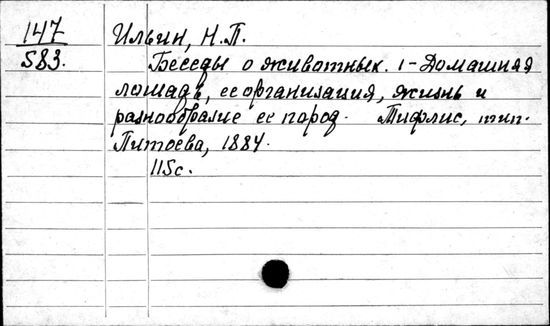 147 Ильин, Н.П.
583. Беседы о животных. 1-Домашняя
лошадь, ее организация, жизнь и
разнообразие ее пород. Тифлис, тип.
Питоева, 1884.
115с.